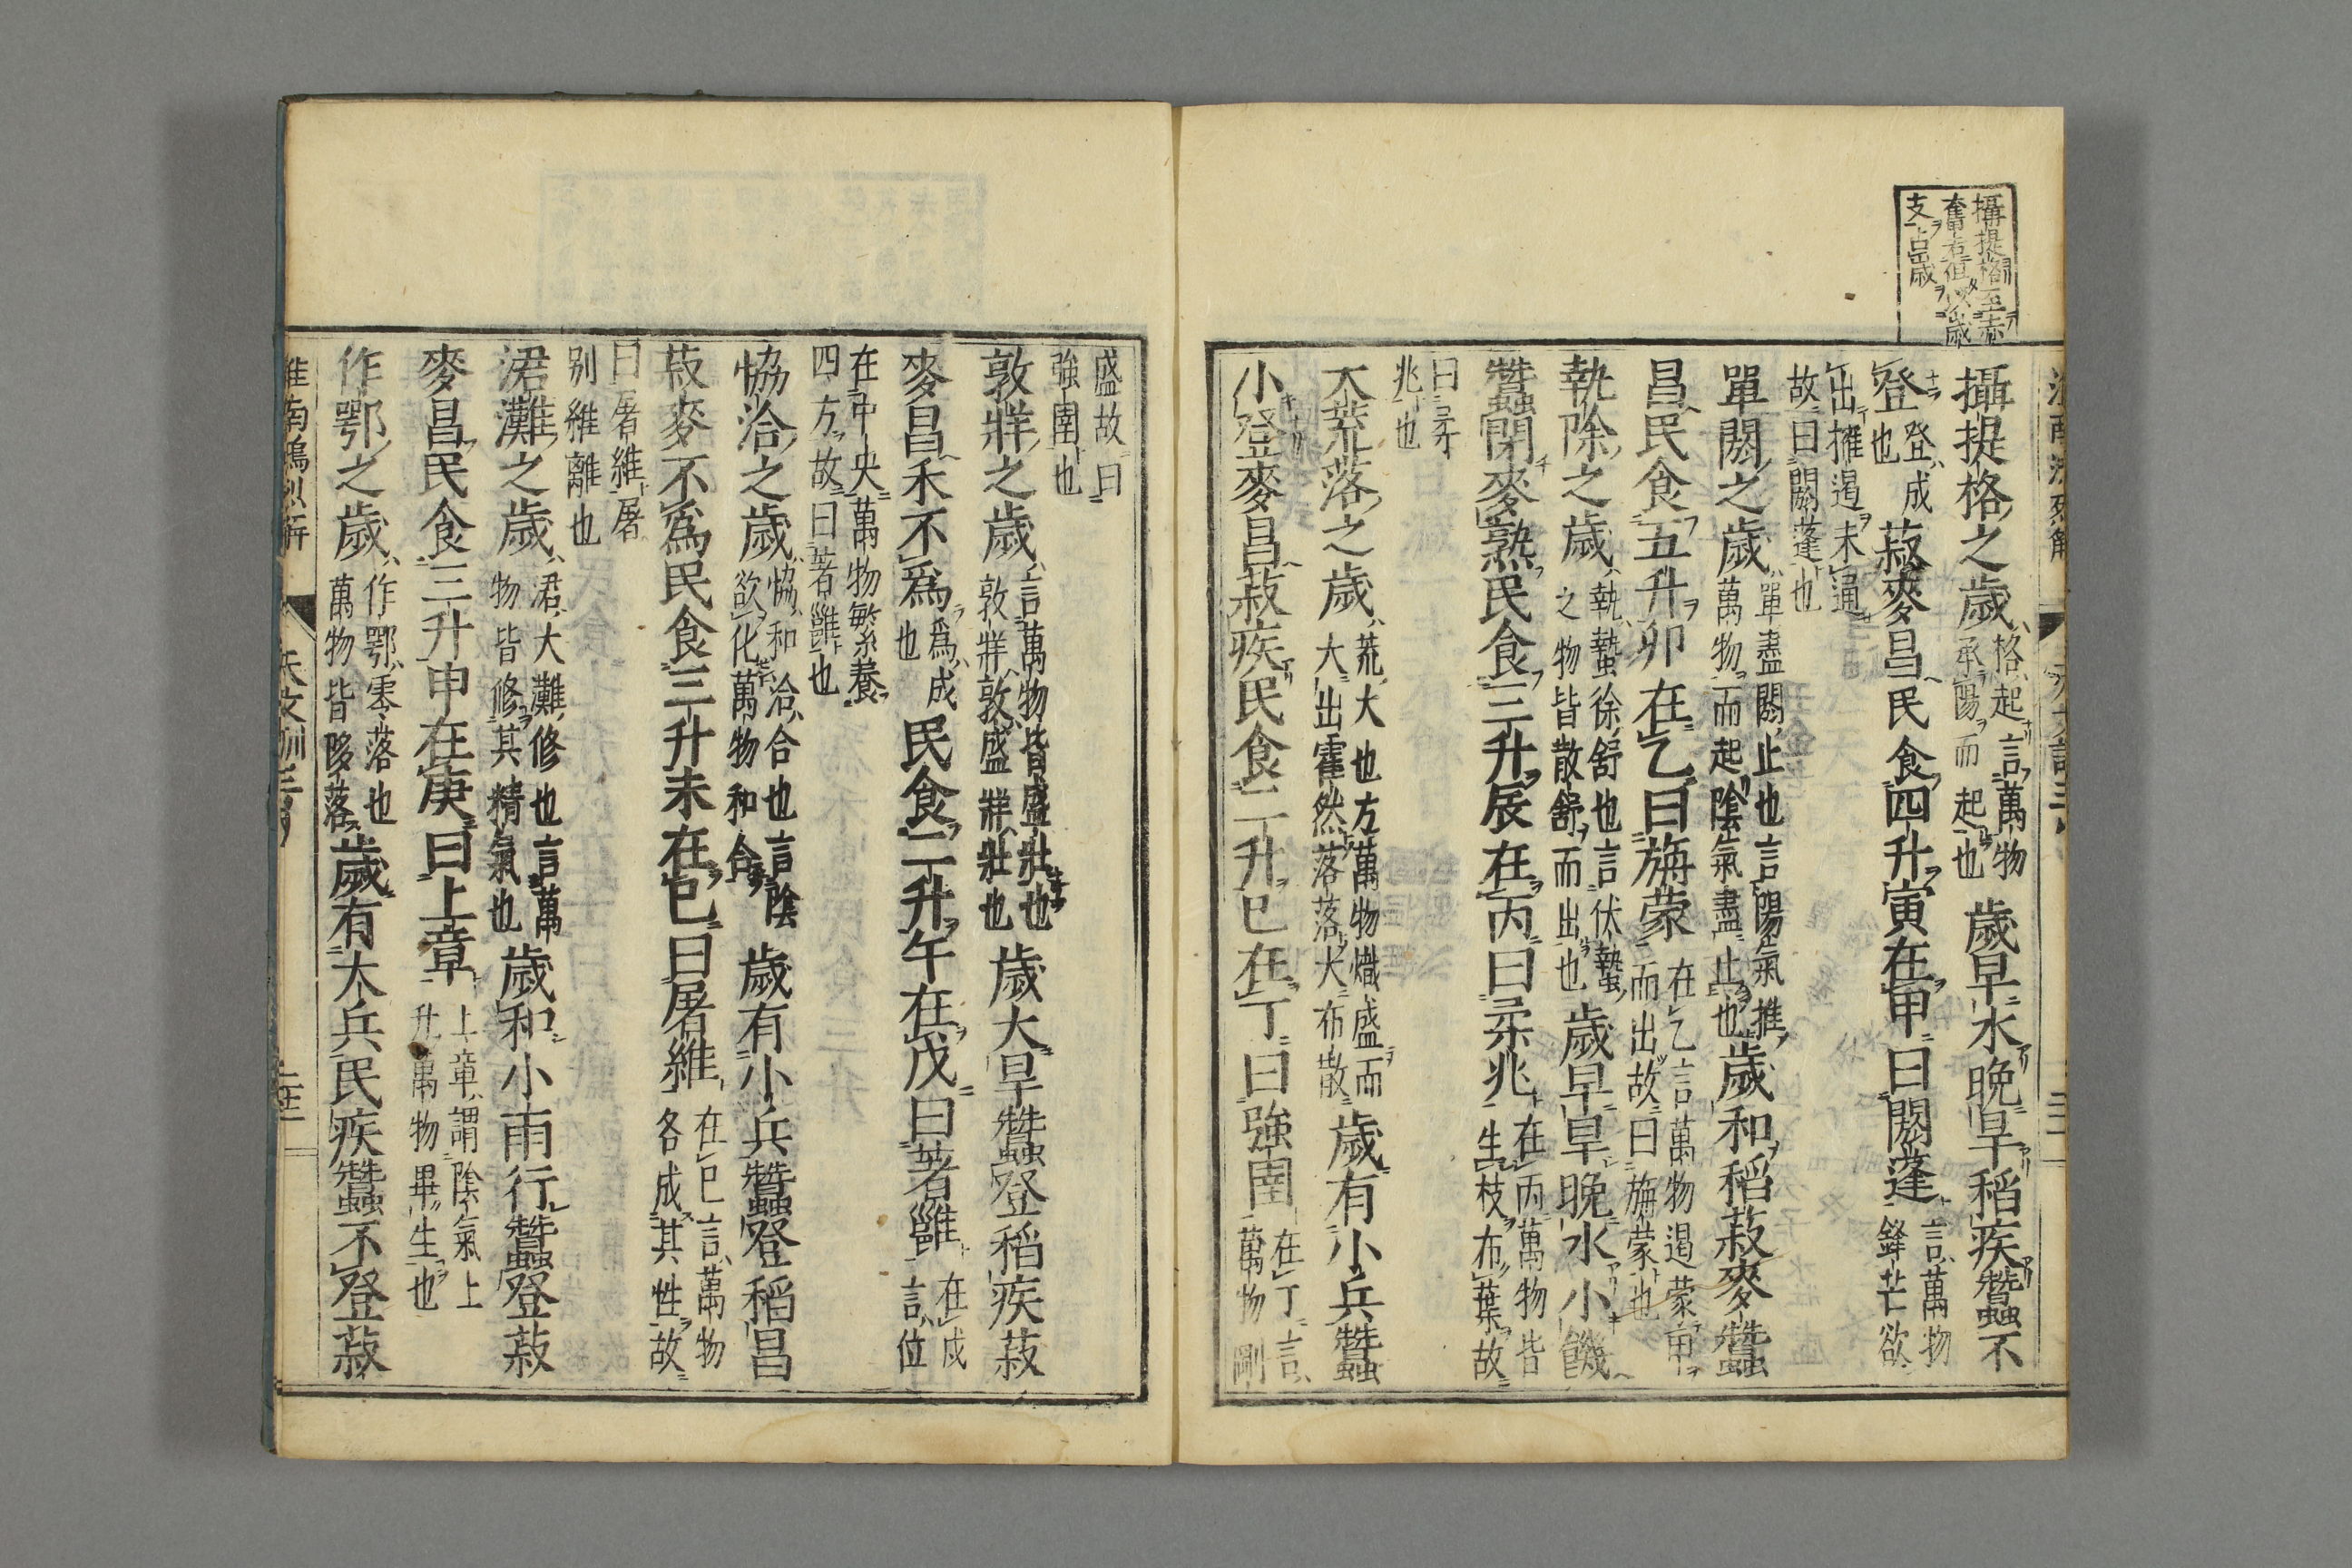 攝提格至赤
奮若但以歳
支占歳
攝提格之歳格起言萬物承陽而起也歳早水晩旱稻疾蠶不
登登成也菽麥昌民食四升寅在甲曰閼蓬言萬物鋒芒欲
出擁遏未通故曰閼蓬也
單閼之歳單盡閼止也言陽氣推萬物而起陰氣盡止也歳和稻菽麥蠶
昌民食五升卯在乙曰旃蒙在乙言萬物遏蒙甲而出故曰旃蒙也
執除之歳執蟄徐舒也言伏蟄之物皆散舒而出也歳早旱晩水小饑
蠶閉麥熟民食三升辰在丙曰柔兆在丙萬物皆生枝布葉故
曰柔兆也
大荒落之歳荒大也方萬物熾盛而大出霍然落落大布散歳有小兵蠶
小登麥昌菽疾民食二升巳在丁曰強圉在丁言萬物剛
盛故曰強圉也
敦牂之歳言萬物皆盛壯也敦牂敦盛牂壯也歳大旱蠶登稻疾菽
麥昌禾不爲爲成也民食二升午在戊曰著雝在戊言位
在中央萬物繁養四方故曰著雝也
協洽之歳協和洽合也言陰欲化萬物和合歳有小兵蠶登稻昌
菽麥不爲民食三升未在已曰屠維在已言萬物各成其性故
曰屠維屠别維離也
涒灘之歳涒大灘修也言萬物皆修其精氣也歳和小雨行蠶登菽
麥昌民食三升申在庚曰上章上章謂陰氣上升萬物畢生也
作鄂之歳作鄂零落也萬物皆陊落歳有大兵民疾蠶不登菽
淮南鴻烈解 天文訓三